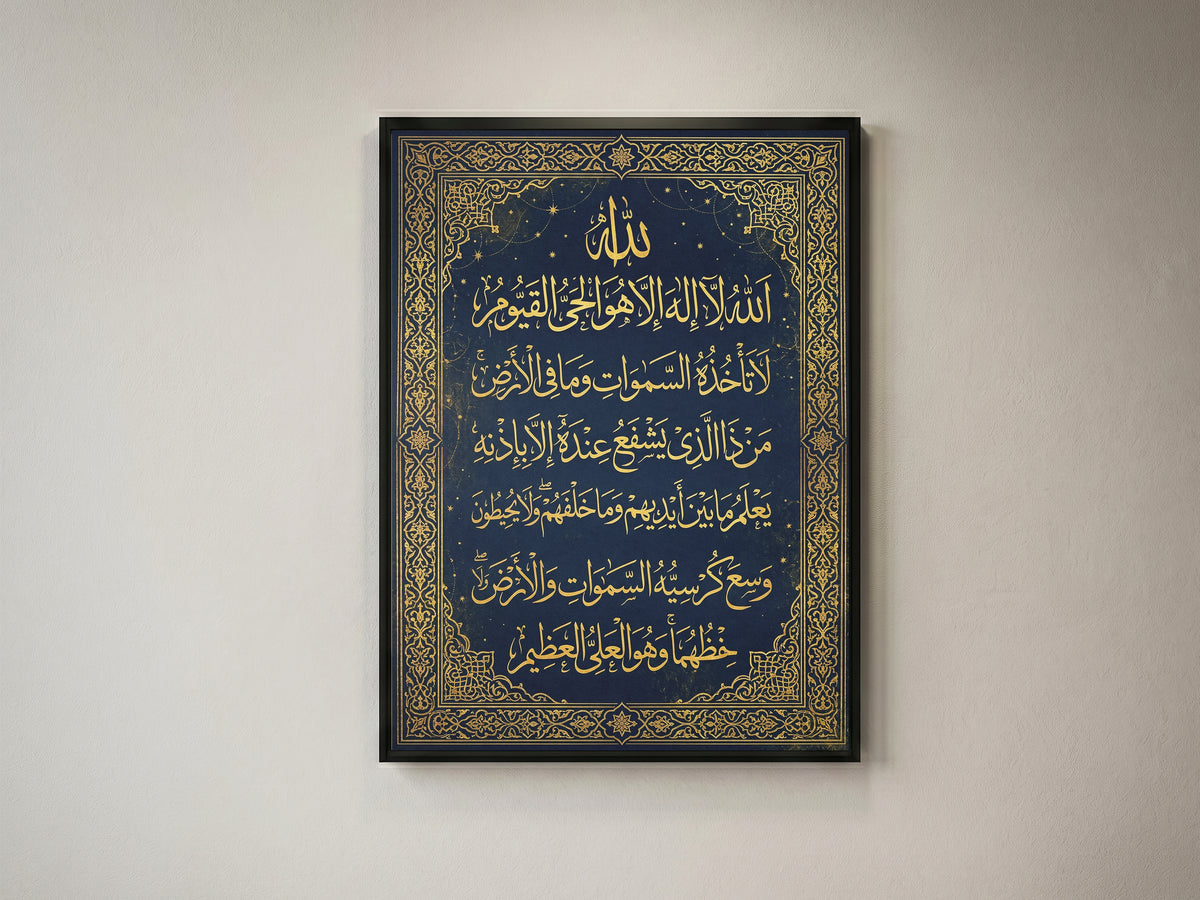 الله
اَللّٰهُ لَآ اِلٰهَ اِلَّا هُوَ الْحَىُّ الْقَيُّومُ
لَا تَأْخُذُهُ السَّمٰوَاتِ وَمَا فِى الْأَرْضِ ۚ
مَنْ ذَا الَّذِىْ يَشْفَعُ عِنْدَهٗٓ إِلَّا بِإِذْنِهِ
يَعْلَمُ مَا بَيْنَ أَيْدِيهِمْ وَمَا خَلْفَهُمْ ۖ وَلَا يُحِيطُونَ
وَسِعَ كُرْسِيُّهُ السَّمٰوَاتِ وَالْأَرْضَ ۖ وَلَا
حِفْظُهُمَا ۚ وَهُوَ الْعَلِىُّ الْعَظِيمُ